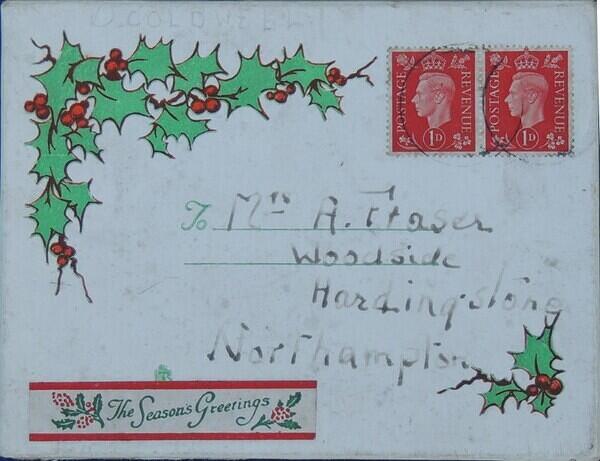 POSTAGE 1D REVENUE POSTAGE 1D REVENUE
To Mrs A. Fraser
Woodside
Hardingstone
Northampton
The Season's Greetings